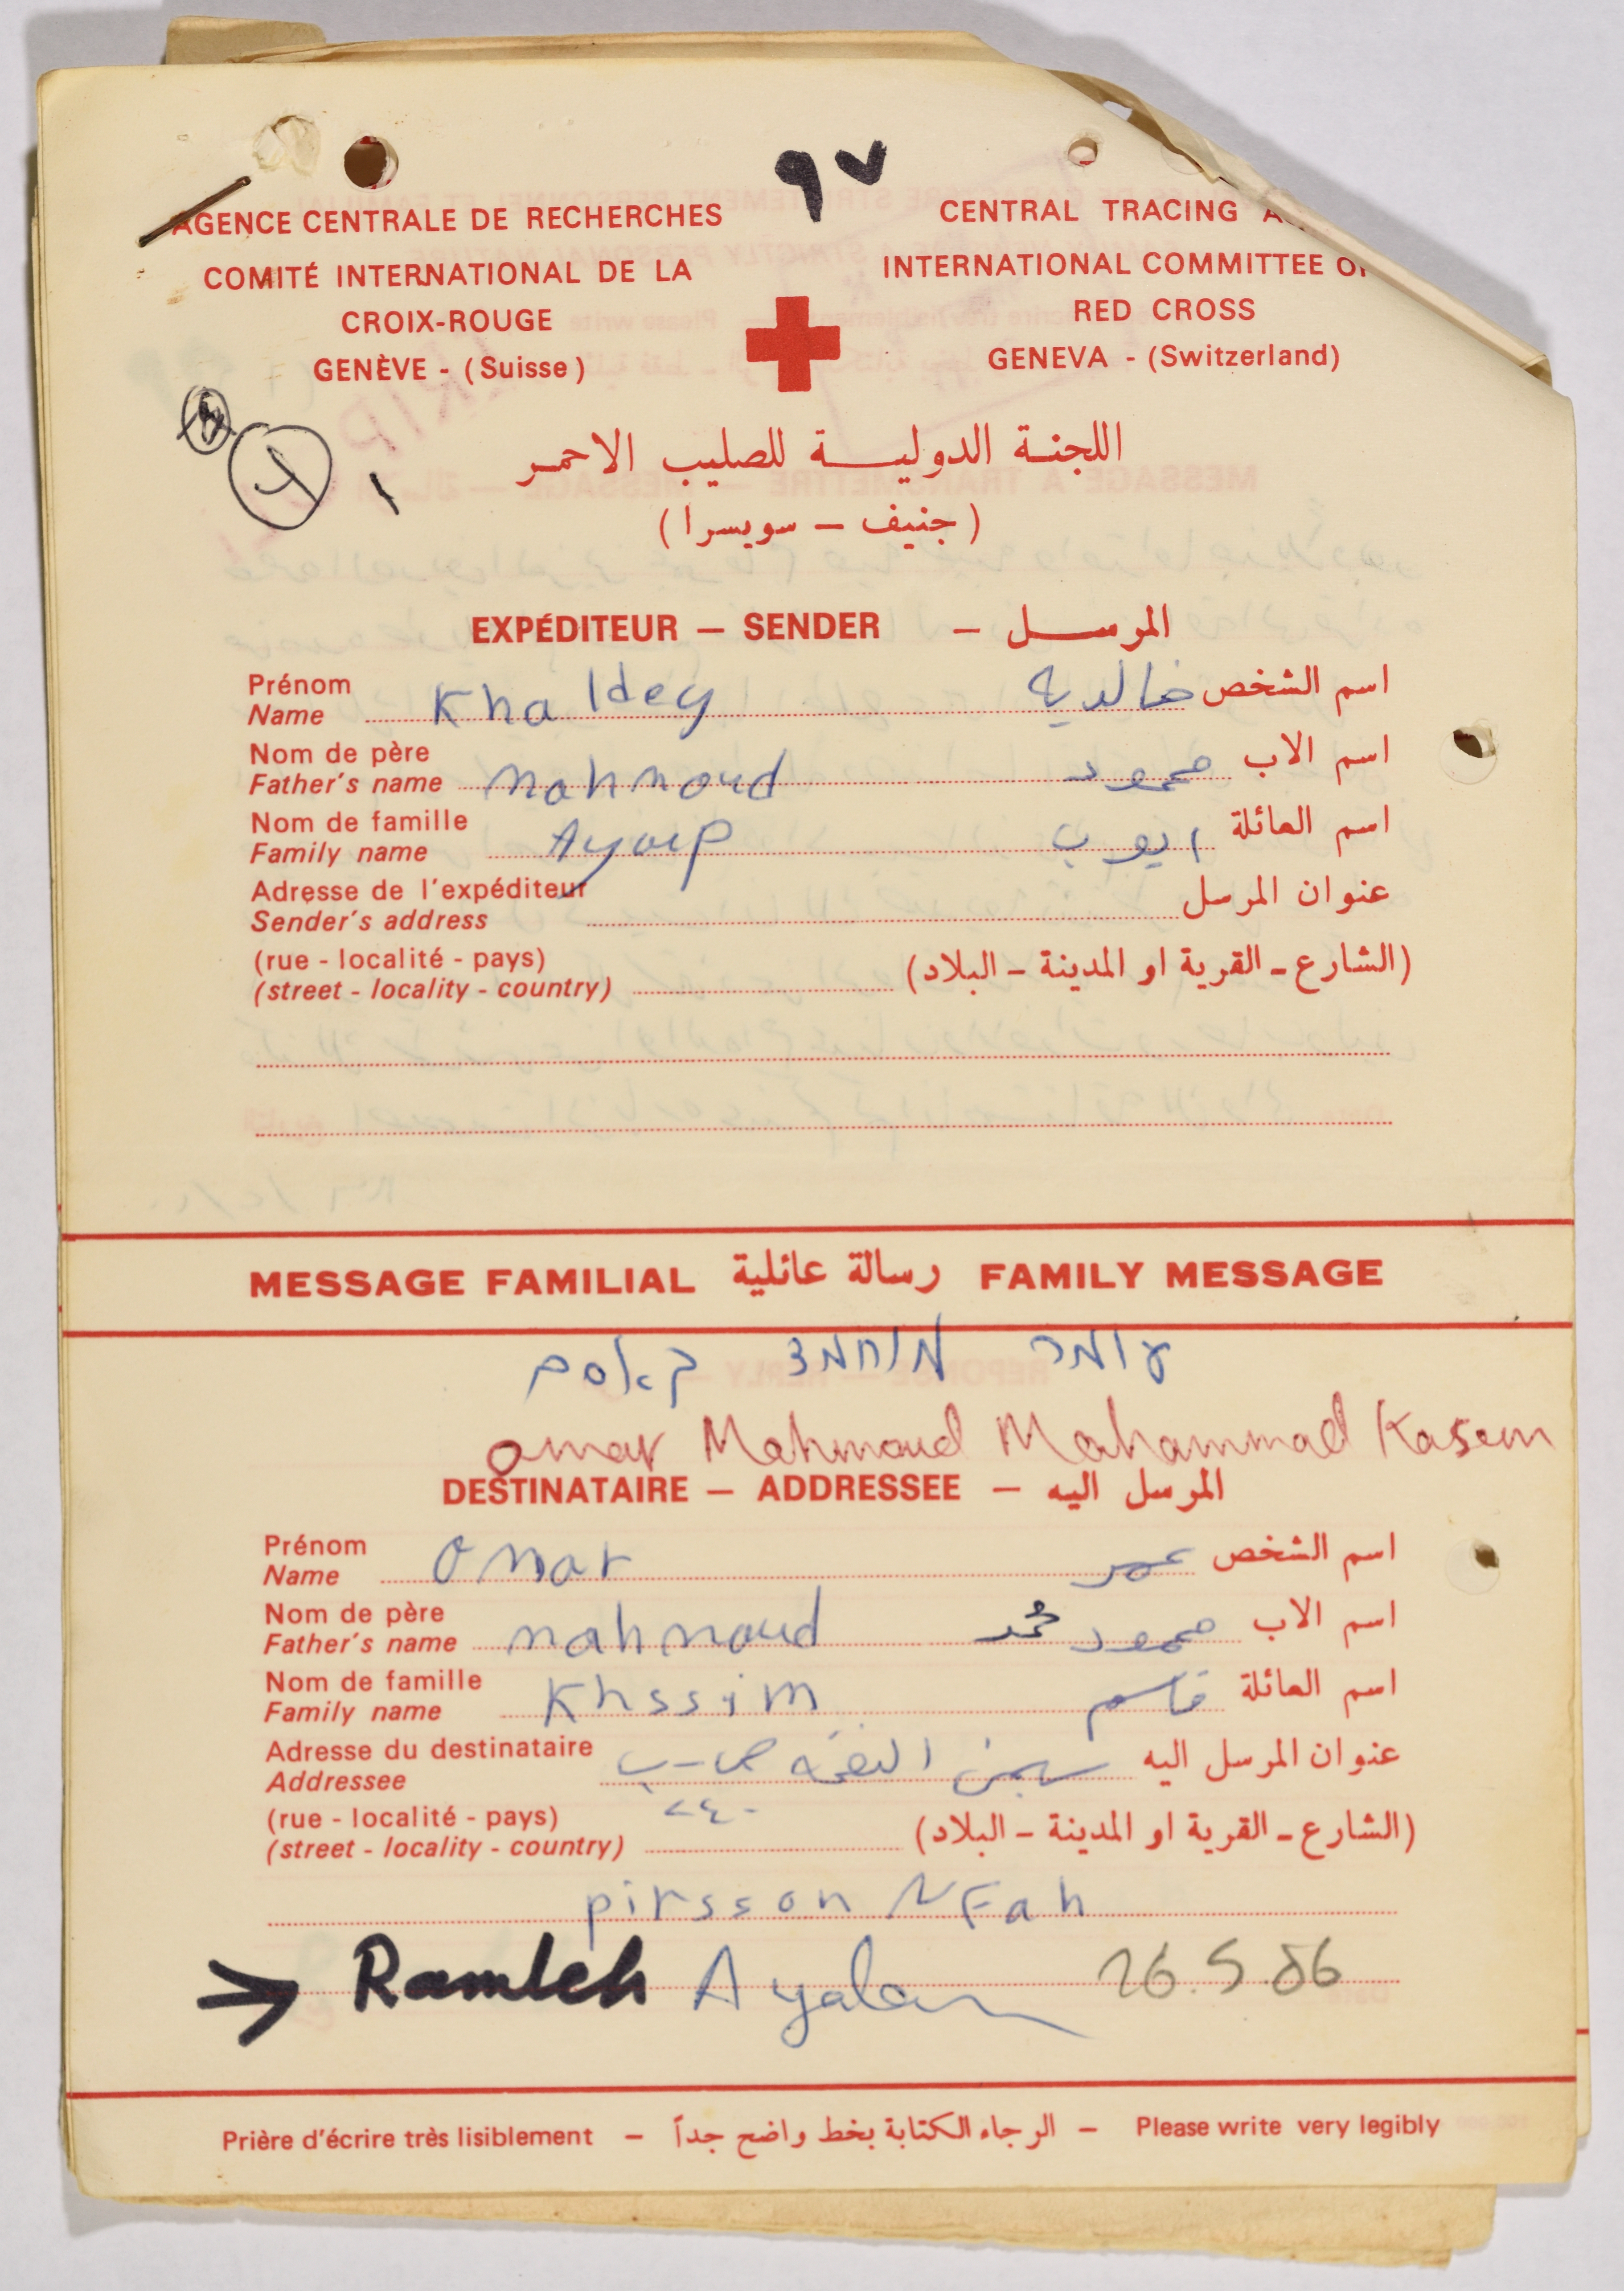 ٩٧
AGENCE CENTRALE DE RECHERCHES
COMITÉ INTERNATIONAL DE LA
CROIX-ROUGE
GENÈVE - (Suisse)
CENTRAL TRACING A
INTERNATIONAL COMMITTEE OF
RED CROSS
GENEVA - (Switzerland)
١
اللجنة الدولية للصليب الاحمر
(جنيف - سويسرا)
EXPÉDITEUR — SENDER — المرسل
Prénom
Name Khaldey خالدية اسم الشخص
Nom de père
Father's name Mahmoud محمود اسم الاب
Nom de famille
Family name Ayoup ايوب اسم العائلة
Adresse de l'expéditeur
Sender's address عنوان المرسل
(rue - localité - pays)
(street - locality - country) (الشارع - القرية او المدينة - البلاد)
MESSAGE FAMILIAL رسالة عائلية FAMILY MESSAGE
עומר מוחמד קאסם
omar Mahmoud Mohammad Kasem
DESTINATAIRE — ADDRESSEE — المرسل اليه
Prénom
Name Omar عمر اسم الشخص
Nom de père
Father's name mahmoud محمود محمد اسم الاب
Nom de famille
Family name Khssim قاسم اسم العائلة
Adresse du destinataire
Addressee سجن النفحه ص-ب عنوان المرسل اليه
(rue - localité - pays) ٢٤٠
(street - locality - country) (الشارع - القرية او المدينة - البلاد)
pirsson NFah
→ Ramleh Ayalon 26.5.86
Prière d'écrire très lisiblement — الرجاء الكتابة بخط واضح جداً — Please write very legibly